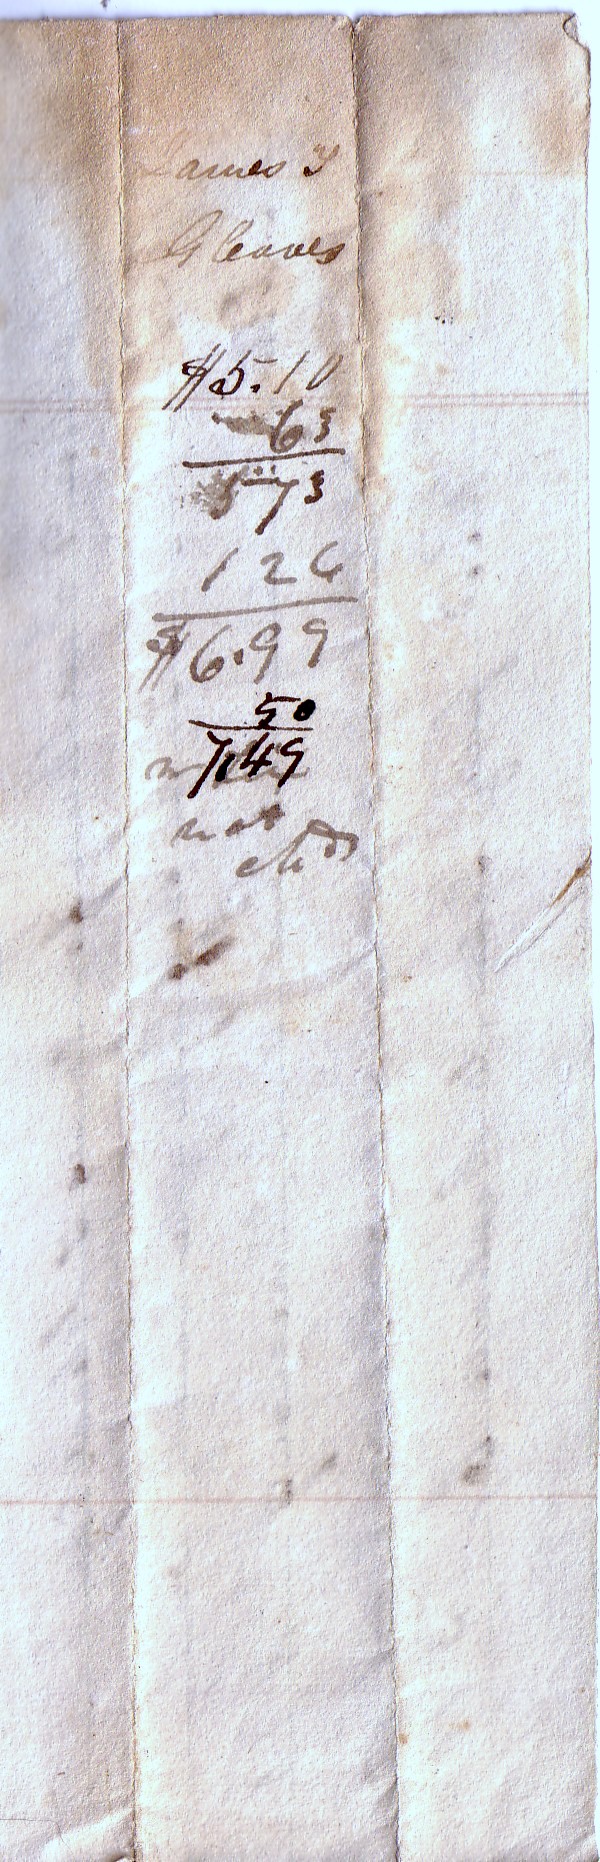 James T
Gleaves
$5.10
63
573
126
$6.99
50
7.49
not